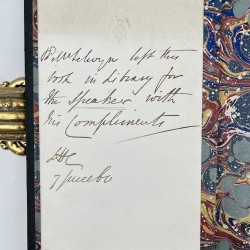 left this
book in Library for
the Speaker with
his Compliments
7 June 60